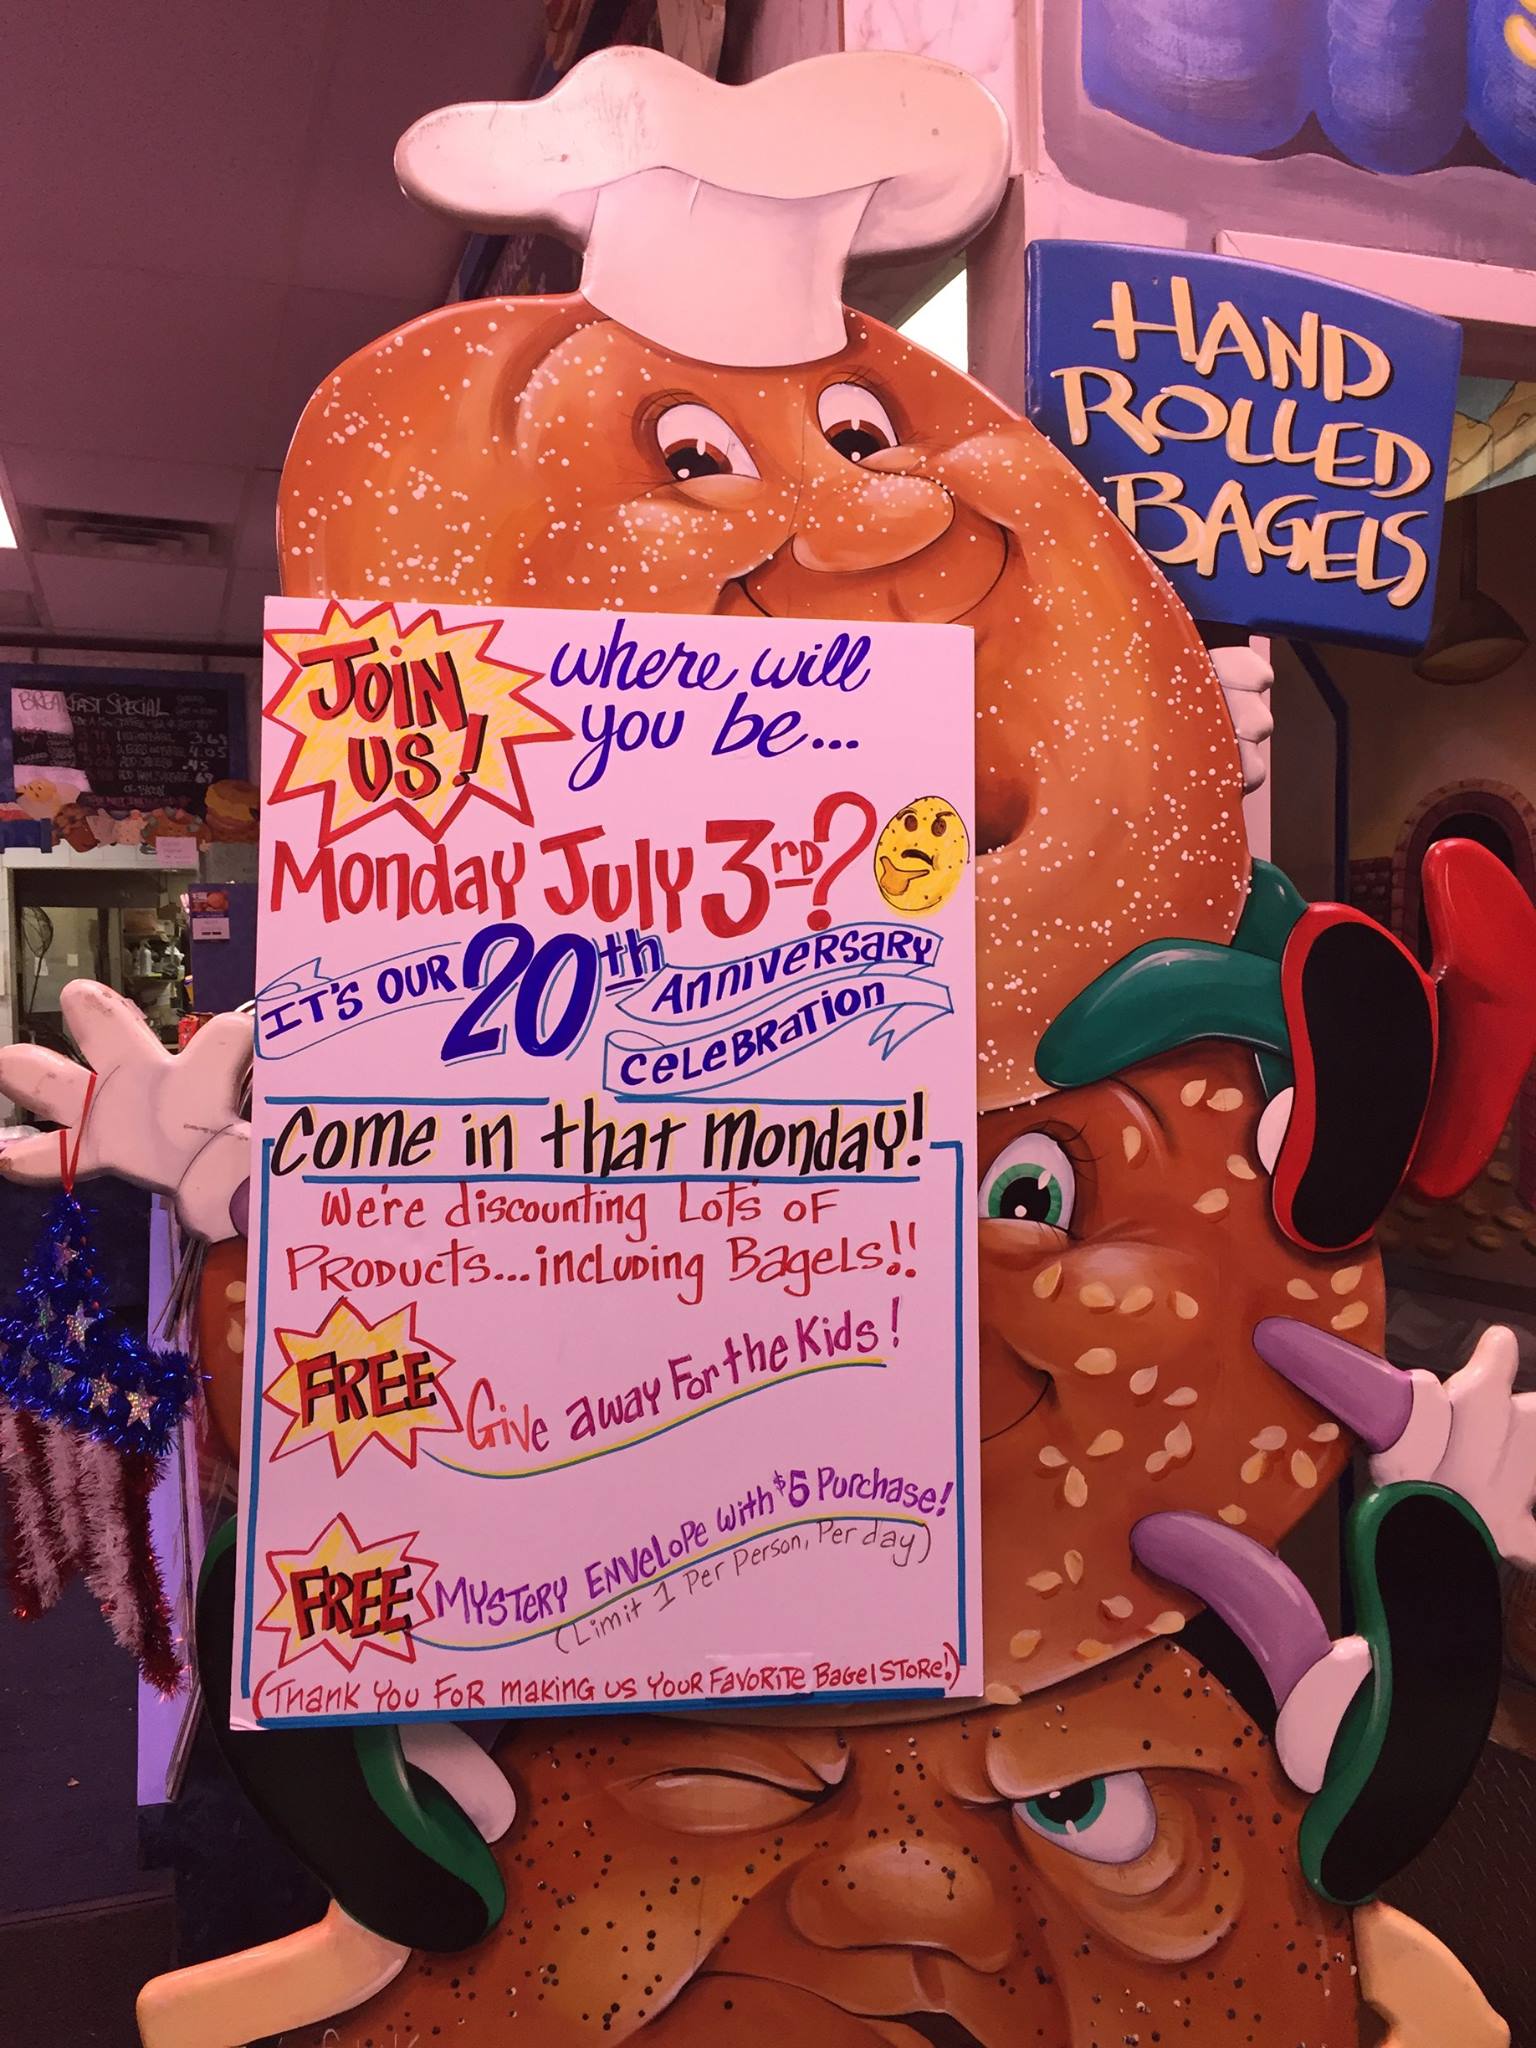 HAND
ROLLED
BAGELS
JOIN
US!
where will
you be...
Monday July 3rd?
IT'S OUR 20th ANNIVERSARY
CELEBRATION
Come in that Monday!
We're discounting Lots of
Products...including Bagels!!
FREE Give away For the Kids!
FREE Mystery Envelope with $5 Purchase!
(Limit 1 Per Person, Per day)
(Thank You For making us Your Favorite Bagel Store!)
BREAKFAST SPECIAL
3.69
4.05
.45
.69